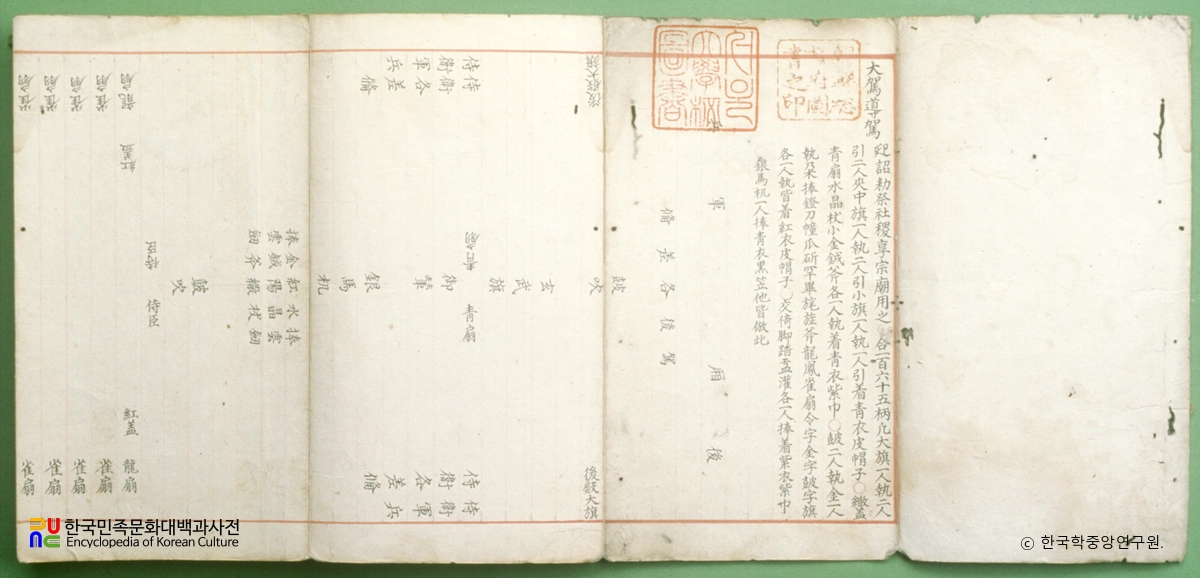 大駕導駕
迎詔勅祭社稷享宗廟用之○合一百六十五柄凡大旗一人執二人
引二人夾中旗一人執二人引小旗一人執一人引着青衣皮帽子○繖蓋
青扇水晶杖小金鉞斧各一人執着青衣紫巾○鼓二人執金二人
執及朵捧鐙刀幢瓜斫罕畢旄旌斧龍鳳雀扇令字金字鼓字旗
各一人執皆着紅衣皮帽子○交倚脚踏盂灌各一人捧着紫衣紫巾
銀馬杌一人捧青衣黑笠他皆倣此
軍 廂 後
備 差 各 後 駕
鼓吹
後殿大旗
後殿大旗
玄武旗
青扇
青扇
御輦
銀馬杌
侍衛
侍衛
各軍
差兵
備
侍衛
侍衛
各軍
差兵
備
捧雲劒
金鉞斧
紅陽繖
水晶杖
捧雲劒
鼓吹
侍臣
侍臣
龍扇
紅蓋
紅蓋
龍扇
雀扇
雀扇
雀扇
雀扇
雀扇
雀扇
雀扇
雀扇
한국민족문화대백과사전
Encyclopedia of Korean Culture
ⓒ 한국학중앙연구원.